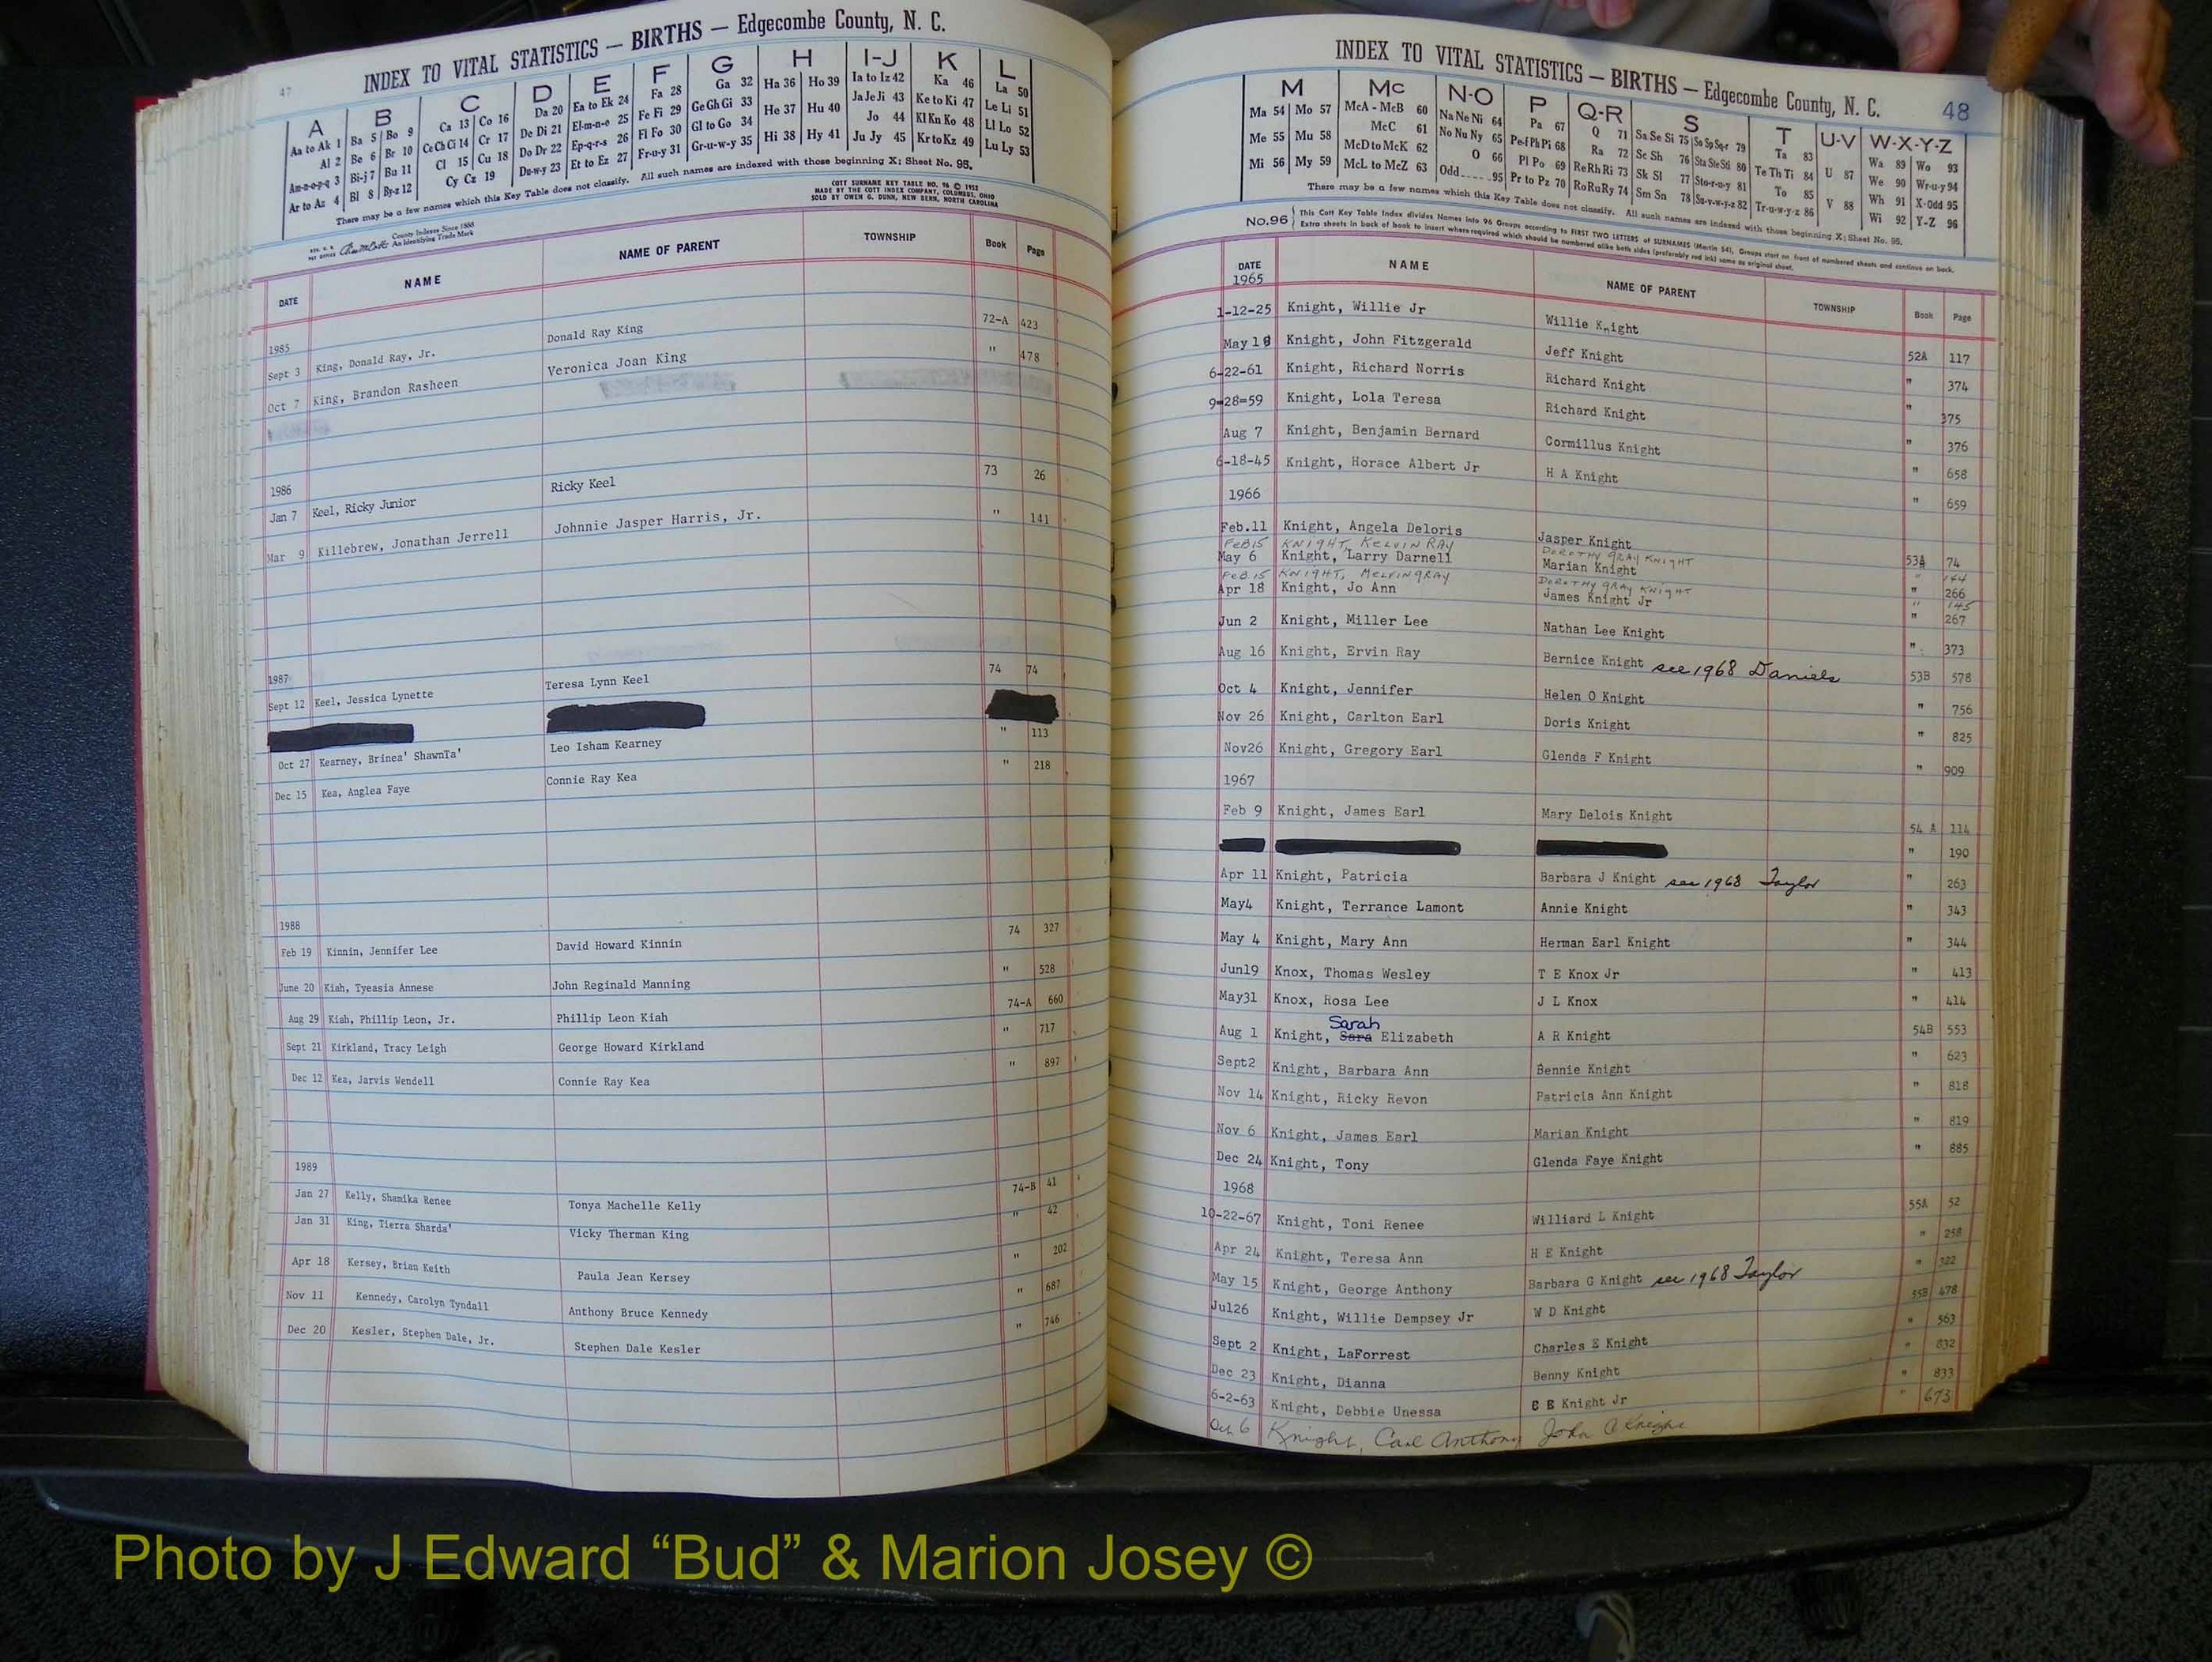 47
INDEX TO VITAL STATISTICS — BIRTHS — Edgecombe County, N. C.
A B C D E F G H I-J K L
Aa to Ak 1 Ba 5 Bo 9 Ca 13 Co 16 Da 20 Ea to Ek 24 Fa 28 Ga 32 Ha 36 Ho 39 Ia to Iz 42 Ka 46 La 50
Al 2 Be 6 Br 10 Ce Ch Ci 14 Cr 17 De Di 21 El-m-n-o 25 Fe Fi 29 Ge Gh Gi 33 He 37 Hu 40 Ja Je Ji 43 Ke to Ki 47 Le Li 51
Am-n-o-p-q 3 Bi-j 7 Bu 11 Cl 15 Cu 18 Do Dr 22 Ep-q-r-s 26 Fl Fo 30 Gl to Go 34 Hi 38 Hy 41 Jo 44 Kl Kn Ko 48 Ll Lo 52
Ar to Az 4 Bl 8 By-z 12 Cy Cz 19 Du-w-y 23 Et to Ez 27 Fr-u-y 31 Gr-u-w-y 35 Ju Jy 45 Kr to Kz 49 Lu Ly 53
There may be a few names which this Key Table does not classify. All such names are indexed with those beginning X; Sheet No. 95.
COTT SURNAME KEY TABLE NO. 96 © 1952
MADE BY THE COTT INDEX COMPANY, COLUMBUS, OHIO
SOLD BY OWEN G. DUNN, NEW BERN, NORTH CAROLINA
County Indexes Since 1888
An Identifying Trade Mark
DATE NAME NAME OF PARENT TOWNSHIP Book Page
1985
Sept 3 King, Donald Ray, Jr. Donald Ray King 72-A 423
Oct 7 King, Brandon Rasheen Veronica Joan King " 478
1986
Jan 7 Keel, Ricky Junior Ricky Keel 73 26
Mar 9 Killebrew, Jonathan Jerrell Johnnie Jasper Harris, Jr. " 141
1987
Sept 12 Keel, Jessica Lynette Teresa Lynn Keel 74 74
Oct 27 Kearney, Brinea' ShawnTa' Leo Isham Kearney " 113
Dec 15 Kea, Anglea Faye Connie Ray Kea " 218
1988
Feb 19 Kinnin, Jennifer Lee David Howard Kinnin 74 327
June 20 Kiah, Tyeasia Annese John Reginald Manning " 528
Aug 29 Kiah, Phillip Leon, Jr. Phillip Leon Kiah 74-A 660
Sept 21 Kirkland, Tracy Leigh George Howard Kirkland " 717
Dec 12 Kea, Jarvis Wendell Connie Ray Kea " 897
1989
Jan 27 Kelly, Shamika Renee Tonya Machelle Kelly 74-B 41
Jan 31 King, Tierra Sharda' Vicky Therman King " 42
Apr 18 Kersey, Brian Keith Paula Jean Kersey " 202
Nov 11 Kennedy, Carolyn Tyndall Anthony Bruce Kennedy " 687
Dec 20 Kesler, Stephen Dale, Jr. Stephen Dale Kesler " 746
INDEX TO VITAL STATISTICS — BIRTHS — Edgecombe County, N. C. 48
M Mc N-O P Q-R S T U-V W-X-Y-Z
Ma 54 Mo 57 McA - McB 60 Na Ne Ni 64 Pa 67 Q 71 Sa Se Si 75 So Sp Sq-r 79 Ta 83 U 87 Wa 89 Wo 93
Me 55 Mu 58 McC 61 No Nu Ny 65 Pe-f Ph Pi 68 Ra 72 Sc Sh 76 Sta Ste Sti 80 Te Th Ti 84 We 90 Wr-u-y 94
Mi 56 My 59 McD to McK 62 O 66 Pl Po 69 Re Rh Ri 73 Sk Sl 77 Sto-r-u-y 81 To 85 V 88 Wh 91 X-Odd 95
McL to McZ 63 Odd 95 Pr to Pz 70 Ro Ru Ry 74 Sm Sn 78 Su-v-w-y-z 82 Tr-u-w-y-z 86 Wi 92 Y-Z 96
There may be a few names which this Key Table does not classify. All such names are indexed with those beginning X; Sheet No. 95.
No. 96 This Cott Key Table Index divides Names into 96 Groups according to FIRST TWO LETTERS of SURNAMES (Martin 54). Groups start on front of numbered sheets and continue on back.
Extra sheets in back of book to insert where required which should be numbered alike both sides (preferably red ink) same as original sheet.
DATE NAME NAME OF PARENT TOWNSHIP Book Page
1965
1-12-25 Knight, Willie Jr Willie Knight 52A 117
May 18 Knight, John Fitzgerald Jeff Knight " 374
6-22-61 Knight, Richard Norris Richard Knight " 375
9-28=59 Knight, Lola Teresa Richard Knight " 376
Aug 7 Knight, Benjamin Bernard Cormillus Knight " 658
6-18-45 Knight, Horace Albert Jr H A Knight " 659
1966
Feb.11 Knight, Angela Deloris Jasper Knight 53A 74
FeB 15 KNIGHT, KELVIN RAY DOROTHY GRAY KNIGHT " 144
May 6 Knight, Larry Darnell Marian Knight " 266
FeB 15 KNIGHT, MELVIN GRAY DOROTHY GRAY KNIGHT " 145
Apr 18 Knight, Jo Ann James Knight Jr " 267
Jun 2 Knight, Miller Lee Nathan Lee Knight " 373
Aug 16 Knight, Ervin Ray Bernice Knight see 1968 Daniels 53B 578
Oct 4 Knight, Jennifer Helen O Knight " 756
Nov 26 Knight, Carlton Earl Doris Knight " 825
Nov26 Knight, Gregory Earl Glenda F Knight " 909
1967
Feb 9 Knight, James Earl Mary Delois Knight 54 A 114
" 190
Apr 11 Knight, Patricia Barbara J Knight see 1968 Taylor " 263
May4 Knight, Terrance Lamont Annie Knight " 343
May 4 Knight, Mary Ann Herman Earl Knight " 344
Jun19 Knox, Thomas Wesley T E Knox Jr " 413
May31 Knox, Rosa Lee J L Knox " 414
Sarah
Aug 1 Knight, Sara Elizabeth A R Knight 54B 553
Sept2 Knight, Barbara Ann Bennie Knight " 623
Nov 14 Knight, Ricky Revon Patricia Ann Knight " 818
Nov 6 Knight, James Earl Marian Knight " 819
Dec 24 Knight, Tony Glenda Faye Knight " 885
1968
10-22-67 Knight, Toni Renee Williard L Knight 55A 52
Apr 24 Knight, Teresa Ann H E Knight " 258
May 15 Knight, George Anthony Barbara G Knight see 1968 Taylor " 322
Jul26 Knight, Willie Dempsey Jr W D Knight 55B 478
Sept 2 Knight, LaForrest Charles E Knight " 563
Dec 23 Knight, Dianna Benny Knight " 832
6-2-63 Knight, Debbie Unessa C E Knight Jr " 833
Oct 6 Knight, Carl Anthony John A Knight " 673
Photo by J Edward “Bud” & Marion Josey ©